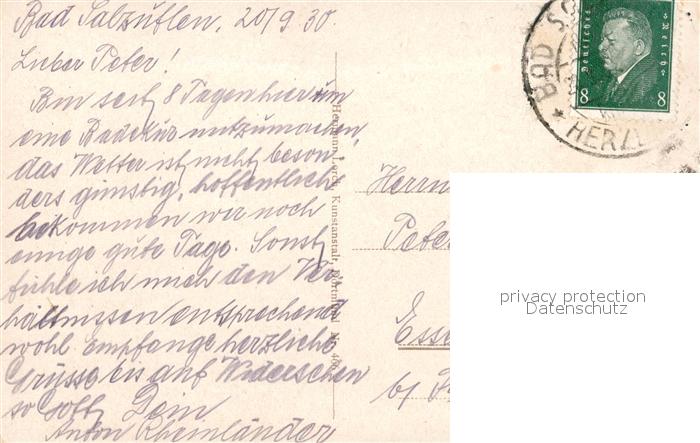 Bad Salzuflen, 20/9.30.
Lieber Peter!
Bin seit 8 Tagen hier um
eine Badekur mitzumachen,
das Wetter ist nicht beson-
ders günstig, hoffentlich
bekommen wir noch
einige gute Tage. Sonst
fühle ich mich den Ver-
hältnissen entsprechend
wohl empfange herzliche
Grüsse bis auf Wiedersehen
so Gott Dein
Anton Rheinländer
Hermann Lorch, Kunstanstalt, Dortmund
Deutsches Reich
8 8
BAD S
HERZ
Herrn
Peter
Ess
b/
privacy protection
Datenschutz